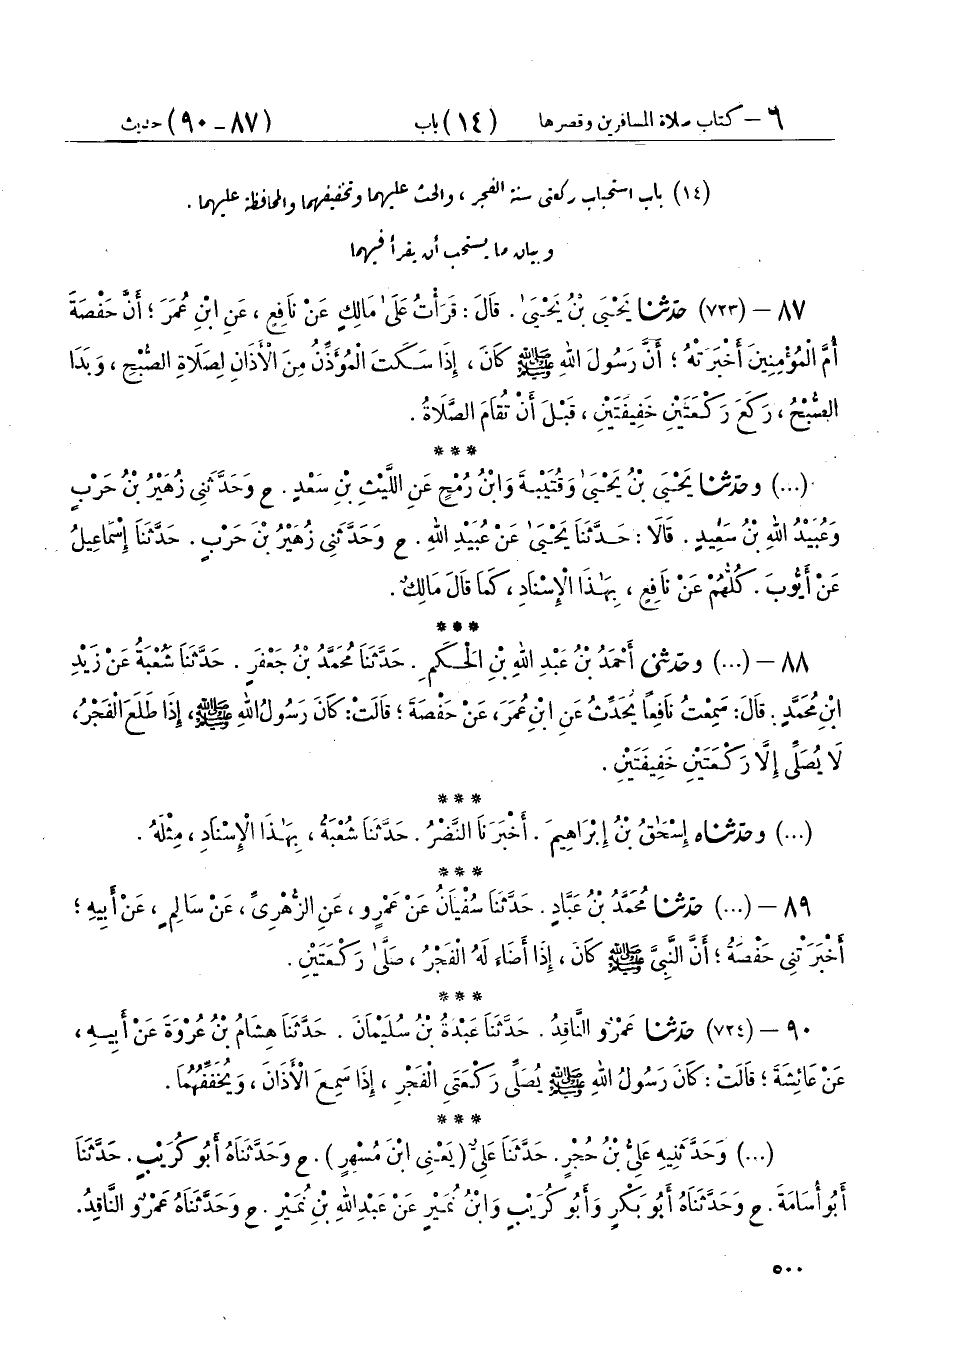 ٦ – كتاب صلاة المسافرين وقصرها (١٤) باب (٨٧–٩٠) حديث
(١٤) باب استحباب ركعتى سنة الفجر ، والحث عليهما وتخفيفهما والمحافظة عليهما .
وبيان ما يستحب أن يقرأ فيهما
٨٧ – (٧٢٣) حدّثنا يَحْيَى بْنُ يَحْيَىٰ . قَالَ : قَرَأْتُ عَلَىٰ مَالِكٍ عَنْ نَافِعٍ ، عَنِ ابْنِ عُمَرَ ؛ أَنَّ حَفْصَةَ
أُمَّ الْمُؤْمِنِينَ أَخْبَرَتْهُ ؛ أَنَّ رَسُولَ اللهِ ﷺ كَانَ ، إِذَا سَكَتَ الْمُؤَذِّنُ مِنَ الْأَذَانِ لِصَلَاةِ الصُّبْحِ ، وَبَدَا
الصُّبْحُ ، رَكَعَ رَكْعَتَيْنِ خَفِيفَتَيْنِ ، قَبْلَ أَنْ تُقَامَ الصَّلَاةُ .
***
(...) وحدّثنا يَحْيَى بْنُ يَحْيَىٰ وَقُتَيْبَةُ وَابْنُ رُمْحٍ عَنِ اللَّيْثِ بْنِ سَعْدٍ . ح وَحَدَّثَنِى زُهَيْرُ بْنُ حَرْبٍ
وَعُبَيْدُ اللهِ بْنُ سَعِيدٍ . قَالَا : حَدَّثَنَا يَحْيَىٰ عَنْ عُبَيْدِ اللهِ . ح وَحَدَّثَنِى زُهَيْرُ بْنُ حَرْبٍ . حَدَّثَنَا إِسْمَاعِيلُ
عَنْ أَيُّوبَ . كُلُّهُمْ عَنْ نَافِعٍ ، بِهَٰذَا الْإِسْنَادِ ، كَمَا قَالَ مَالِكٌ .
***
٨٨ – (...) وحدّثنى أَحْمَدُ بْنُ عَبْدِ اللهِ بْنِ الْحَكَمِ . حَدَّثَنَا مُحَمَّدُ بْنُ جَعْفَرٍ . حَدَّثَنَا شُعْبَةُ عَنْ زَيْدِ
ابْنِ مُحَمَّدٍ . قَالَ : سَمِعْتُ نَافِعاً يُحَدِّثُ عَنِ ابْنِ عُمَرَ ، عَنْ حَفْصَةَ ؛ قَالَتْ : كَانَ رَسُولُ اللهِ ﷺ ، إِذَا طَلَعَ الْفَجْرُ ،
لَا يُصَلِّى إِلَّا رَكْعَتَيْنِ خَفِيفَتَيْنِ .
***
(...) وحدّثناه إِسْحَٰقُ بْنُ إِبْرَاهِيمَ . أَخْبَرَنَا النَّضْرُ . حَدَّثَنَا شُعْبَةُ ، بِهَٰذَا الْإِسْنَادِ ، مِثْلَهُ .
***
٨٩ – (...) حدّثنا مُحَمَّدُ بْنُ عَبَّادٍ . حَدَّثَنَا سُفْيَانُ عَنْ عَمْرٍو ، عَنِ الزُّهْرِىِّ ، عَنْ سَالِمٍ ، عَنْ أَبِيهِ ؛
أَخْبَرَتْنِى حَفْصَةُ ؛ أَنَّ النَّبِىَّ ﷺ كَانَ ، إِذَا أَضَاءَ لَهُ الْفَجْرُ ، صَلَّىٰ رَكْعَتَيْنِ .
***
٩٠ – (٧٢٤) حدّثنا عَمْرٌو النَّاقِدُ . حَدَّثَنَا عَبْدَةُ بْنُ سُلَيْمَانَ . حَدَّثَنَا هِشَامُ بْنُ عُرْوَةَ عَنْ أَبِيهِ ،
عَنْ عَائِشَةَ ؛ قَالَتْ : كَانَ رَسُولُ اللهِ ﷺ يُصَلِّى رَكْعَتَىِ الْفَجْرِ ، إِذَا سَمِعَ الْأَذَانَ ، وَيُخَفِّفُهُمَا .
***
(...) وَحَدَّثَنِيهِ عَلِىُّ بْنُ حُجْرٍ . حَدَّثَنَا عَلِىٌّ ( يَعْنِى ابْنَ مُسْهِرٍ ) . ح وَحَدَّثَنَاهُ أَبُو كُرَيْبٍ . حَدَّثَنَا
أَبُو أُسَامَةَ . ح وَحَدَّثَنَاهُ أَبُو بَكْرٍ وَأَبُو كُرَيْبٍ وَابْنُ نُمَيْرٍ عَنْ عَبْدِ اللهِ بْنِ نُمَيْرٍ . ح وَحَدَّثَنَاهُ عَمْرٌو النَّاقِدُ .
٥٠٠